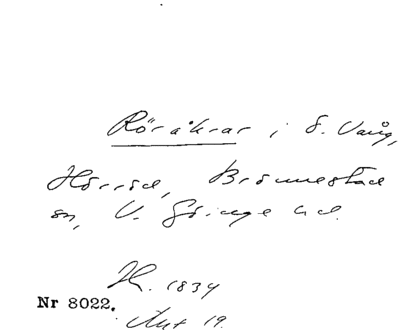 Röråkrar i S. Vång,
Hörröd, Brönnestad
sn, V. Göinge hd.
H. 1834
Nr 8022.
Akt 19.